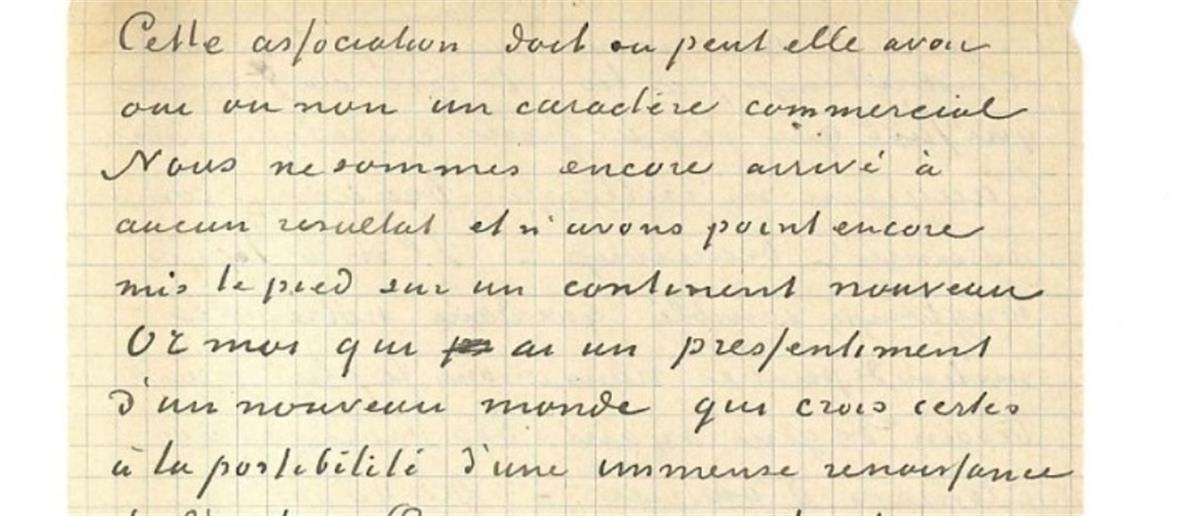 Cette association doit ou peut elle avoir
oui ou non un caractère commercial
Nous ne sommes encore arrivé à
aucun resultat et n'avons point encore
mis le pied sur un continent nouveau
Or moi qui ai un pressentiment
d'un nouveau monde qui crois certes
à la possibilité d'une immense renaissance